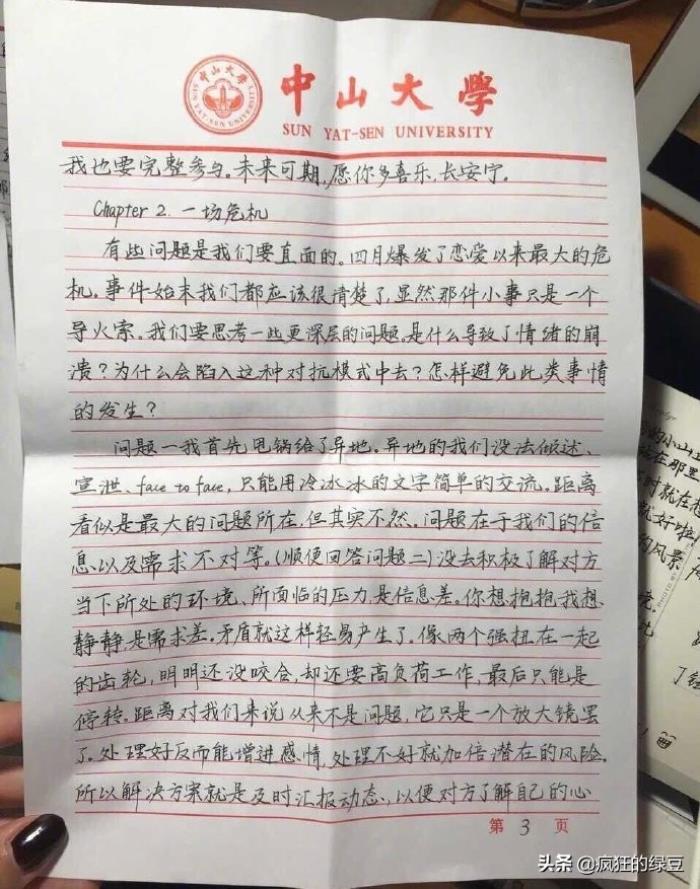 中山大学
SUN YAT-SEN UNIVERSITY
我也要完整参与。未来可期,愿你多喜乐,长安宁。
Chapter 2. 一场危机
有些问题是我们要直面的。四月爆发了恋爱以来最大的危
机。事件始末我们都应该很清楚了,显然那件小事只是一个
导火索。我们要思考一些更深层的问题。是什么导致了情绪的崩
溃?为什么会陷入这种对抗模式中去?怎样避免此类事情
的发生?
问题一我首先甩锅给了异地。异地的我们没法倾述、
宣泄、face to face,只能用冷冰冰的文字简单的交流。距离
看似是最大的问题所在,但其实不然。问题在于我们的信
息以及需求不对等。(顺便回答问题二)没去积极了解对方
当下所处的环境、所面临的压力,是信息差。你想抱抱我想
静静,是需求差。矛盾就这样轻易产生了。像两个强扭在一起
的齿轮,明明还没咬合,却还要高负荷工作,最后只能是
停转。距离对我们来说从来不是问题,它只是一个放大镜罢
了。处理好反而能增进感情,处理不好就加倍潜在的风险。
所以解决方案就是及时汇报动态,以便对方了解自己的心
第 3 页
头条 @疯狂的绿豆